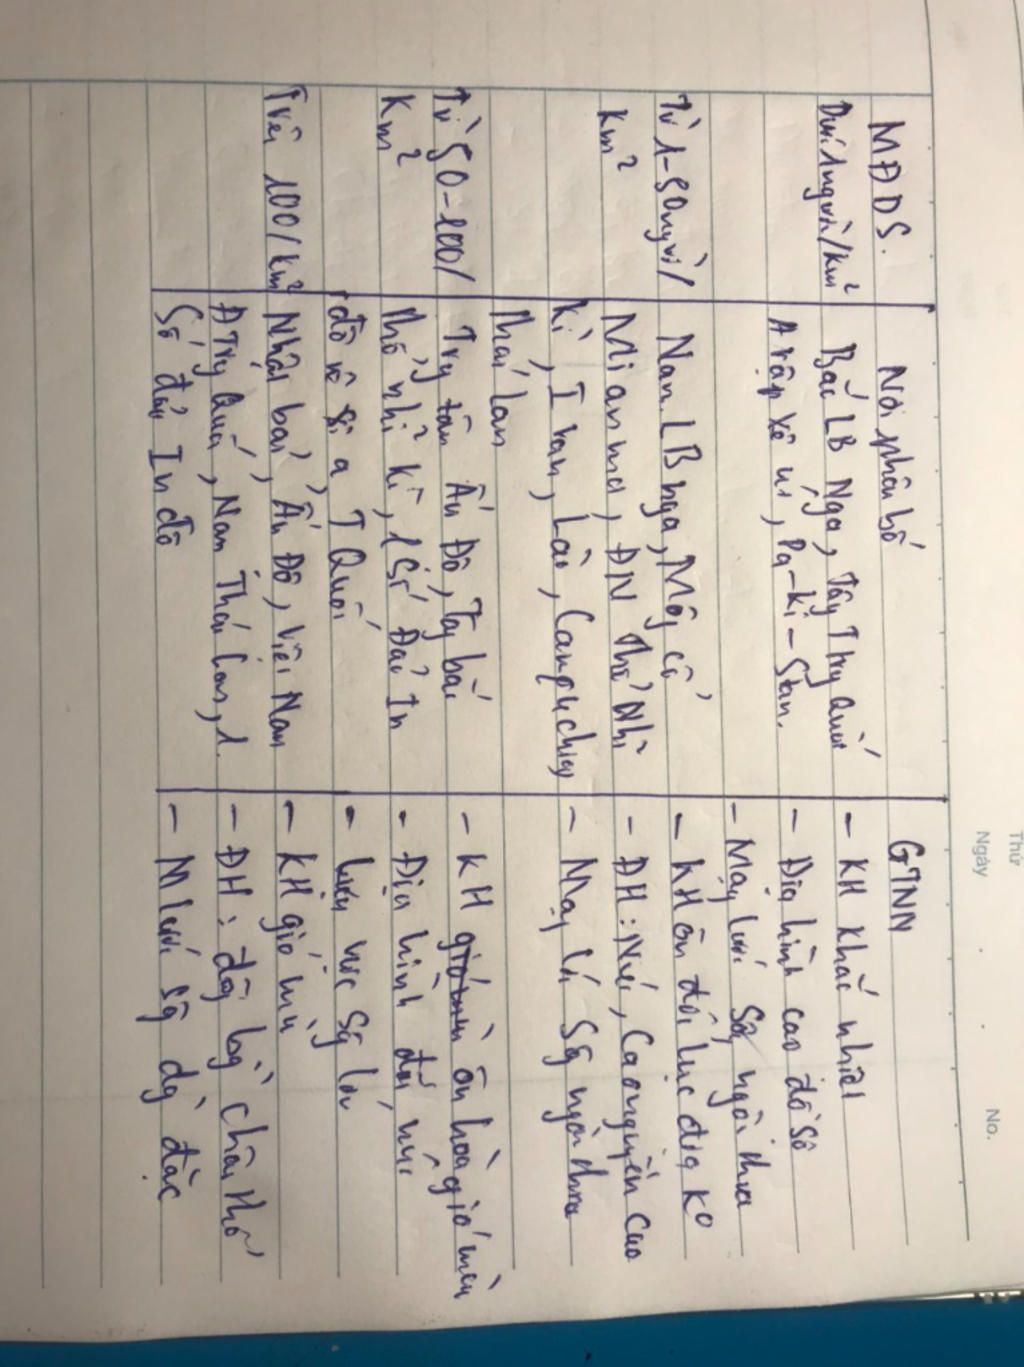 Thứ
Ngày
No.
MĐDS.
Nơi phân bố
GTNN
Dưới 1 người/km²
Bắc LB Nga, Tây Trg Quốc
A rập xê út, Pa-ki-Stan.
- KH khắc nhiệt
- Địa hình cao đồ sộ
- Mạng lưới Sg ngòi thưa
Từ 1-50 người/
km²
Nam LB nga, Mông cổ
Mi an ma, ĐN Thổ Nhĩ
Kì, I ran, Lào, Campuchia
Thái lan
- kH ôn đới lục địa k⁰
- ĐH: Núi, Cao nguyên Cao
- Mạng lưới Sg ngòi thưa
Từ 50-100/
km²
Trg tâm Ấn Độ, Tây bắc
thổ nhĩ kì, 1 Số Đảo In
đô nê si a T Quốc
- KH ôn hòa gió mùa
- Địa hình đồi núi
- Lưu vực Sg lớn
Trên 100/km²
Nhật bản, Ấn Độ, Việt Nam
Đ Trg Quốc, Nam Thái Lan, 1
Số đảo In đô
- KH gió mùa
- ĐH: đồng bằng châu thổ
- M lưới sg dày đặc